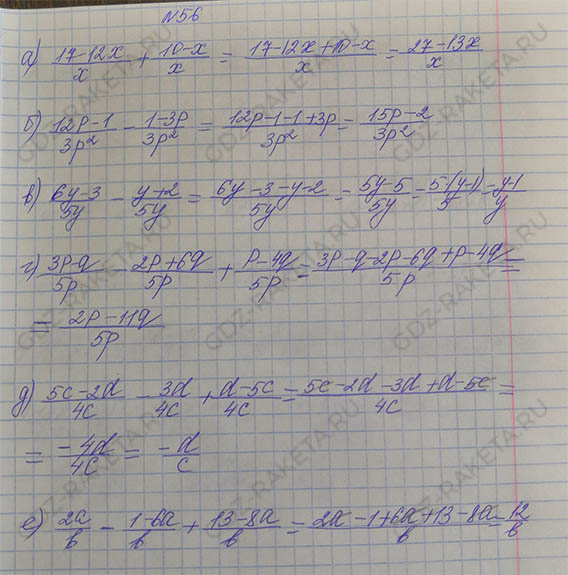 №56
а) (17-12x)/x + (10-x)/x = (17-12x+10-x)/x = (27-13x)/x
б) (12p-1)/3p² - (1-3p)/3p² = (12p-1-1+3p)/3p² = (15p-2)/3p²
в) (6y-3)/5y - (y+2)/5y = (6y-3-y-2)/5y = (5y-5)/5y = 5·(y-1)/5 = (y-1)/y
г) (3p-q)/5p - (2p+6q)/5p + (p-4q)/5p = (3p-q-2p-6q+p-4q)/5p =
= (2p-11q)/5p
д) (5c-2d)/4c - 3d/4c + (d-5c)/4c = (5c-2d-3d+d-5c)/4c =
= -4d/4c = -d/c
е) 2a/b - (1-6a)/b + (13-8a)/b = (2a-1+6a+13-8a)/b = 12/b
GDZ-RAKETA.RU